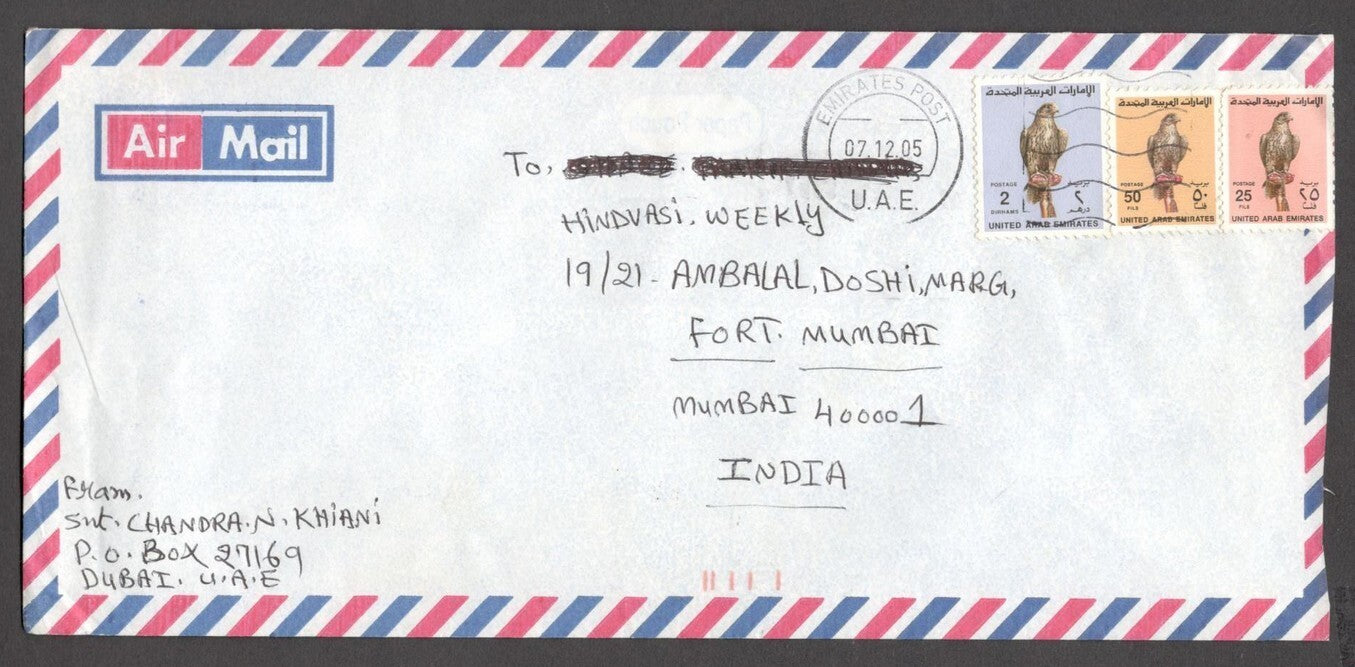 Air Mail
EMIRATES POST
07.12.05
U.A.E.
الإمارات العربية المتحدة
POSTAGE بريد
2 ٢
DIRHAMS درهم
UNITED ARAB EMIRATES
الإمارات العربية المتحدة
POSTAGE بريد
50 ٥٠
FILS فلسا
UNITED ARAB EMIRATES
الإمارات العربية المتحدة
POSTAGE بريد
25 ٢٥
FILS فلسا
UNITED ARAB EMIRATES
To,
HINDVASI. WEEKLY
19/21- AMBALAL, DOSHI, MARG,
FORT. MUMBAI
MUMBAI 400001
INDIA
From.
Smt. CHANDRA. N. KHIANI
P.O. BOX 27169
DUBAI. U.A.E